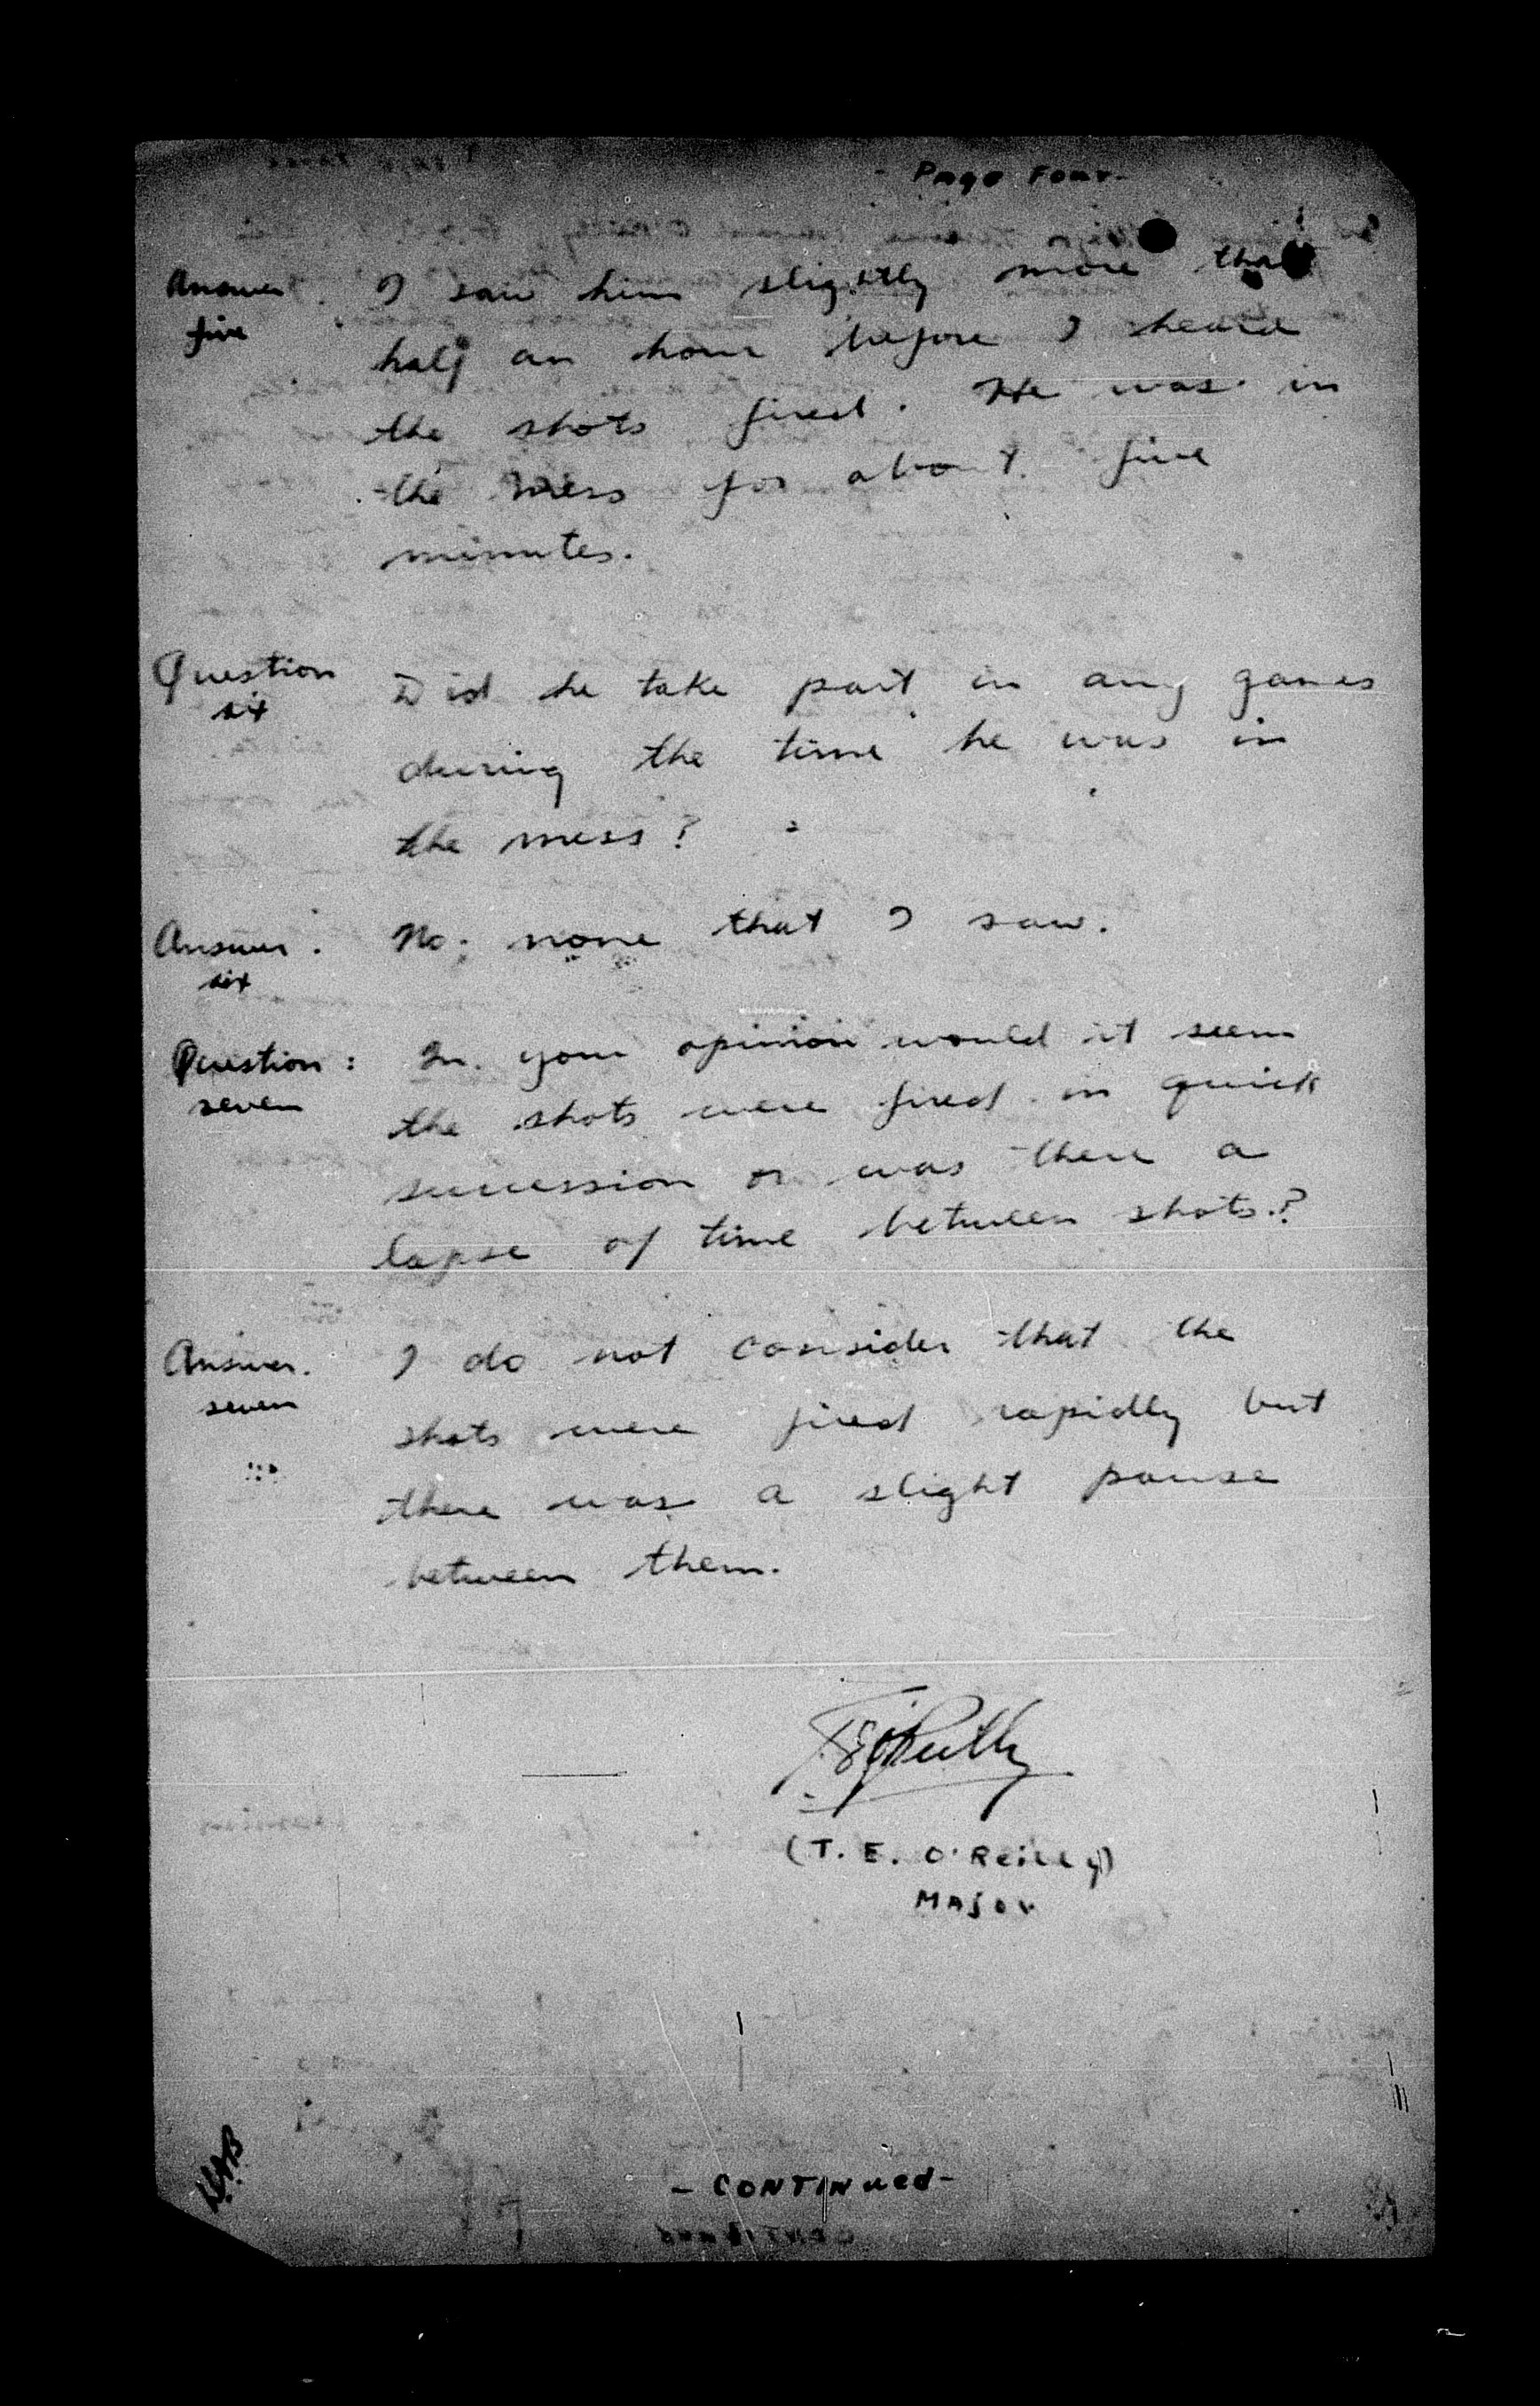 - Page Four -
Answer five. I saw him slightly more than
half an hour before I heard
the shots fired. He was in
the mess for about five
minutes.
Question six Did he take part in any games
during the time he was in
the mess?
Answer six. No; none that I saw.
Question seven: In your opinion would it seem
the shots were fired in quick
succession or was there a
lapse of time between shots?
Answer seven. I do not consider that the
shots were fired rapidly but
there was a slight pause
between them.
TEO'Reilly
(T. E. O'Reilly)
Major
- Continued -